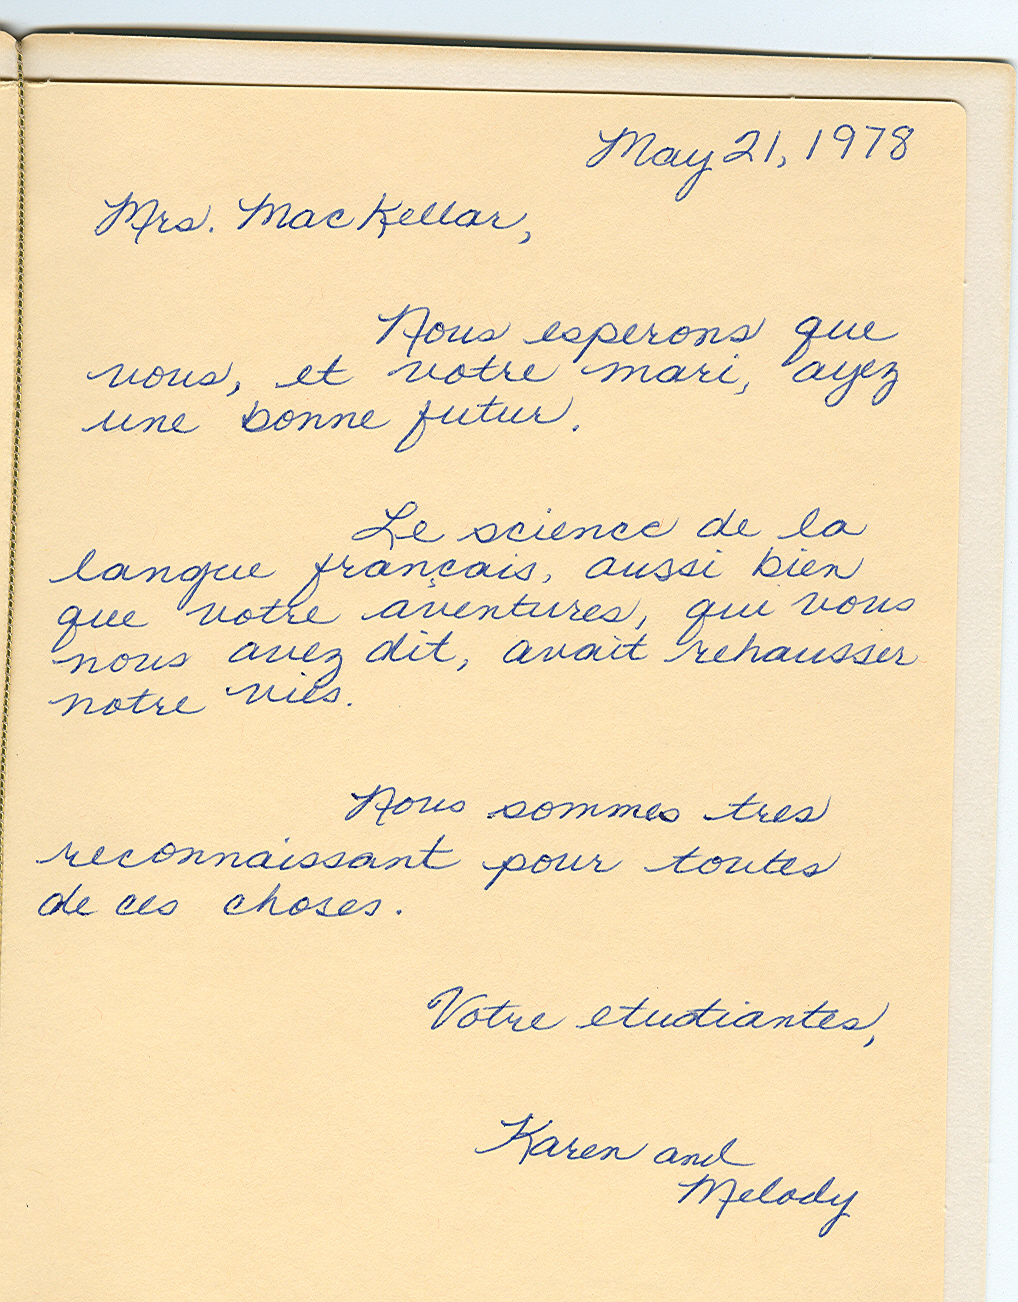 May 21, 1978
Mrs. MacKellar,
Nous esperons que
vous, et votre mari, ayez
une bonne futur.
Le science de la
langue français, aussi bien
que votre aventures, qui vous
nous avez dit, avait rehausser
notre vies.
Nous sommes tres
reconnaissant pour toutes
de ces choses.
Votre etudiantes,
Karen and
Melody